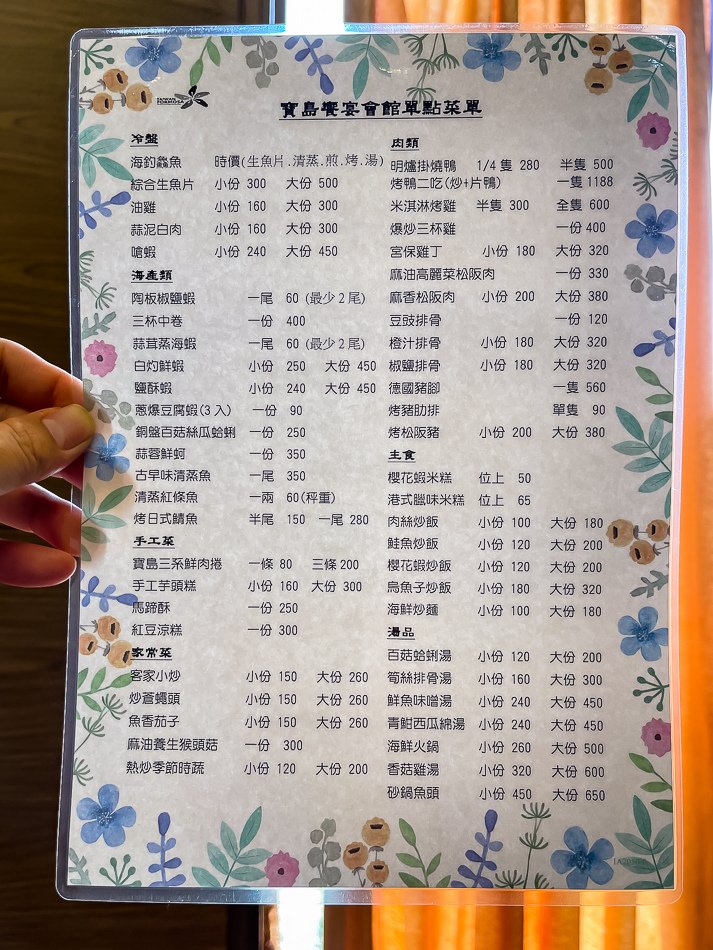 寶島饗宴會館單點菜單
冷盤
海釣鱻魚 時價(生魚片.清蒸.煎.烤.湯)
綜合生魚片 小份 300 大份 500
油雞 小份 160 大份 300
蒜泥白肉 小份 160 大份 300
嗆蝦 小份 240 大份 450
海產類
陶板椒鹽蝦 一尾 60 (最少 2 尾)
三杯中卷 一份 400
蒜茸蒸海蝦 一尾 60 (最少 2 尾)
白灼鮮蝦 小份 250 大份 450
鹽酥蝦 小份 240 大份 450
蔥爆豆腐蝦(3 入) 一份 90
銅盤百菇絲瓜蛤蜊 一份 250
蒜蓉鮮蚵 一份 350
古早味清蒸魚 一尾 350
清蒸紅條魚 一兩 60(秤重)
烤日式鯖魚 半尾 150 一尾 280
手工菜
寶島三系鮮肉捲 一條 80 三條 200
手工芋頭糕 小份 160 大份 300
馬蹄酥 一份 250
紅豆涼糕 一份 300
家常菜
客家小炒 小份 150 大份 260
炒蒼蠅頭 小份 150 大份 260
魚香茄子 小份 150 大份 260
麻油養生猴頭菇 一份 300
熱炒季節時蔬 小份 120 大份 200
肉類
明爐掛燒鴨 1/4 隻 280 半隻 500
烤鴨二吃(炒+片鴨) 一隻 1188
米淇淋烤雞 半隻 300 全隻 600
爆炒三杯雞 一份 400
宮保雞丁 小份 180 大份 320
麻油高麗菜松阪肉 一份 330
麻香松阪肉 小份 200 大份 380
豆豉排骨 一份 120
橙汁排骨 小份 180 大份 320
椒鹽排骨 小份 180 大份 320
德國豬腳 一隻 560
烤豬肋排 單隻 90
烤松阪豬 小份 200 大份 380
主食
櫻花蝦米糕 位上 50
港式臘味米糕 位上 65
肉絲炒飯 小份 100 大份 180
鮭魚炒飯 小份 120 大份 200
櫻花蝦炒飯 小份 120 大份 200
烏魚子炒飯 小份 180 大份 320
海鮮炒麵 小份 100 大份 180
湯品
百菇蛤蜊湯 小份 120 大份 200
筍絲排骨湯 小份 160 大份 300
鮮魚味噌湯 小份 240 大份 450
青魽西瓜綿湯 小份 240 大份 450
海鮮火鍋 小份 260 大份 500
香菇雞湯 小份 320 大份 600
砂鍋魚頭 小份 450 大份 650